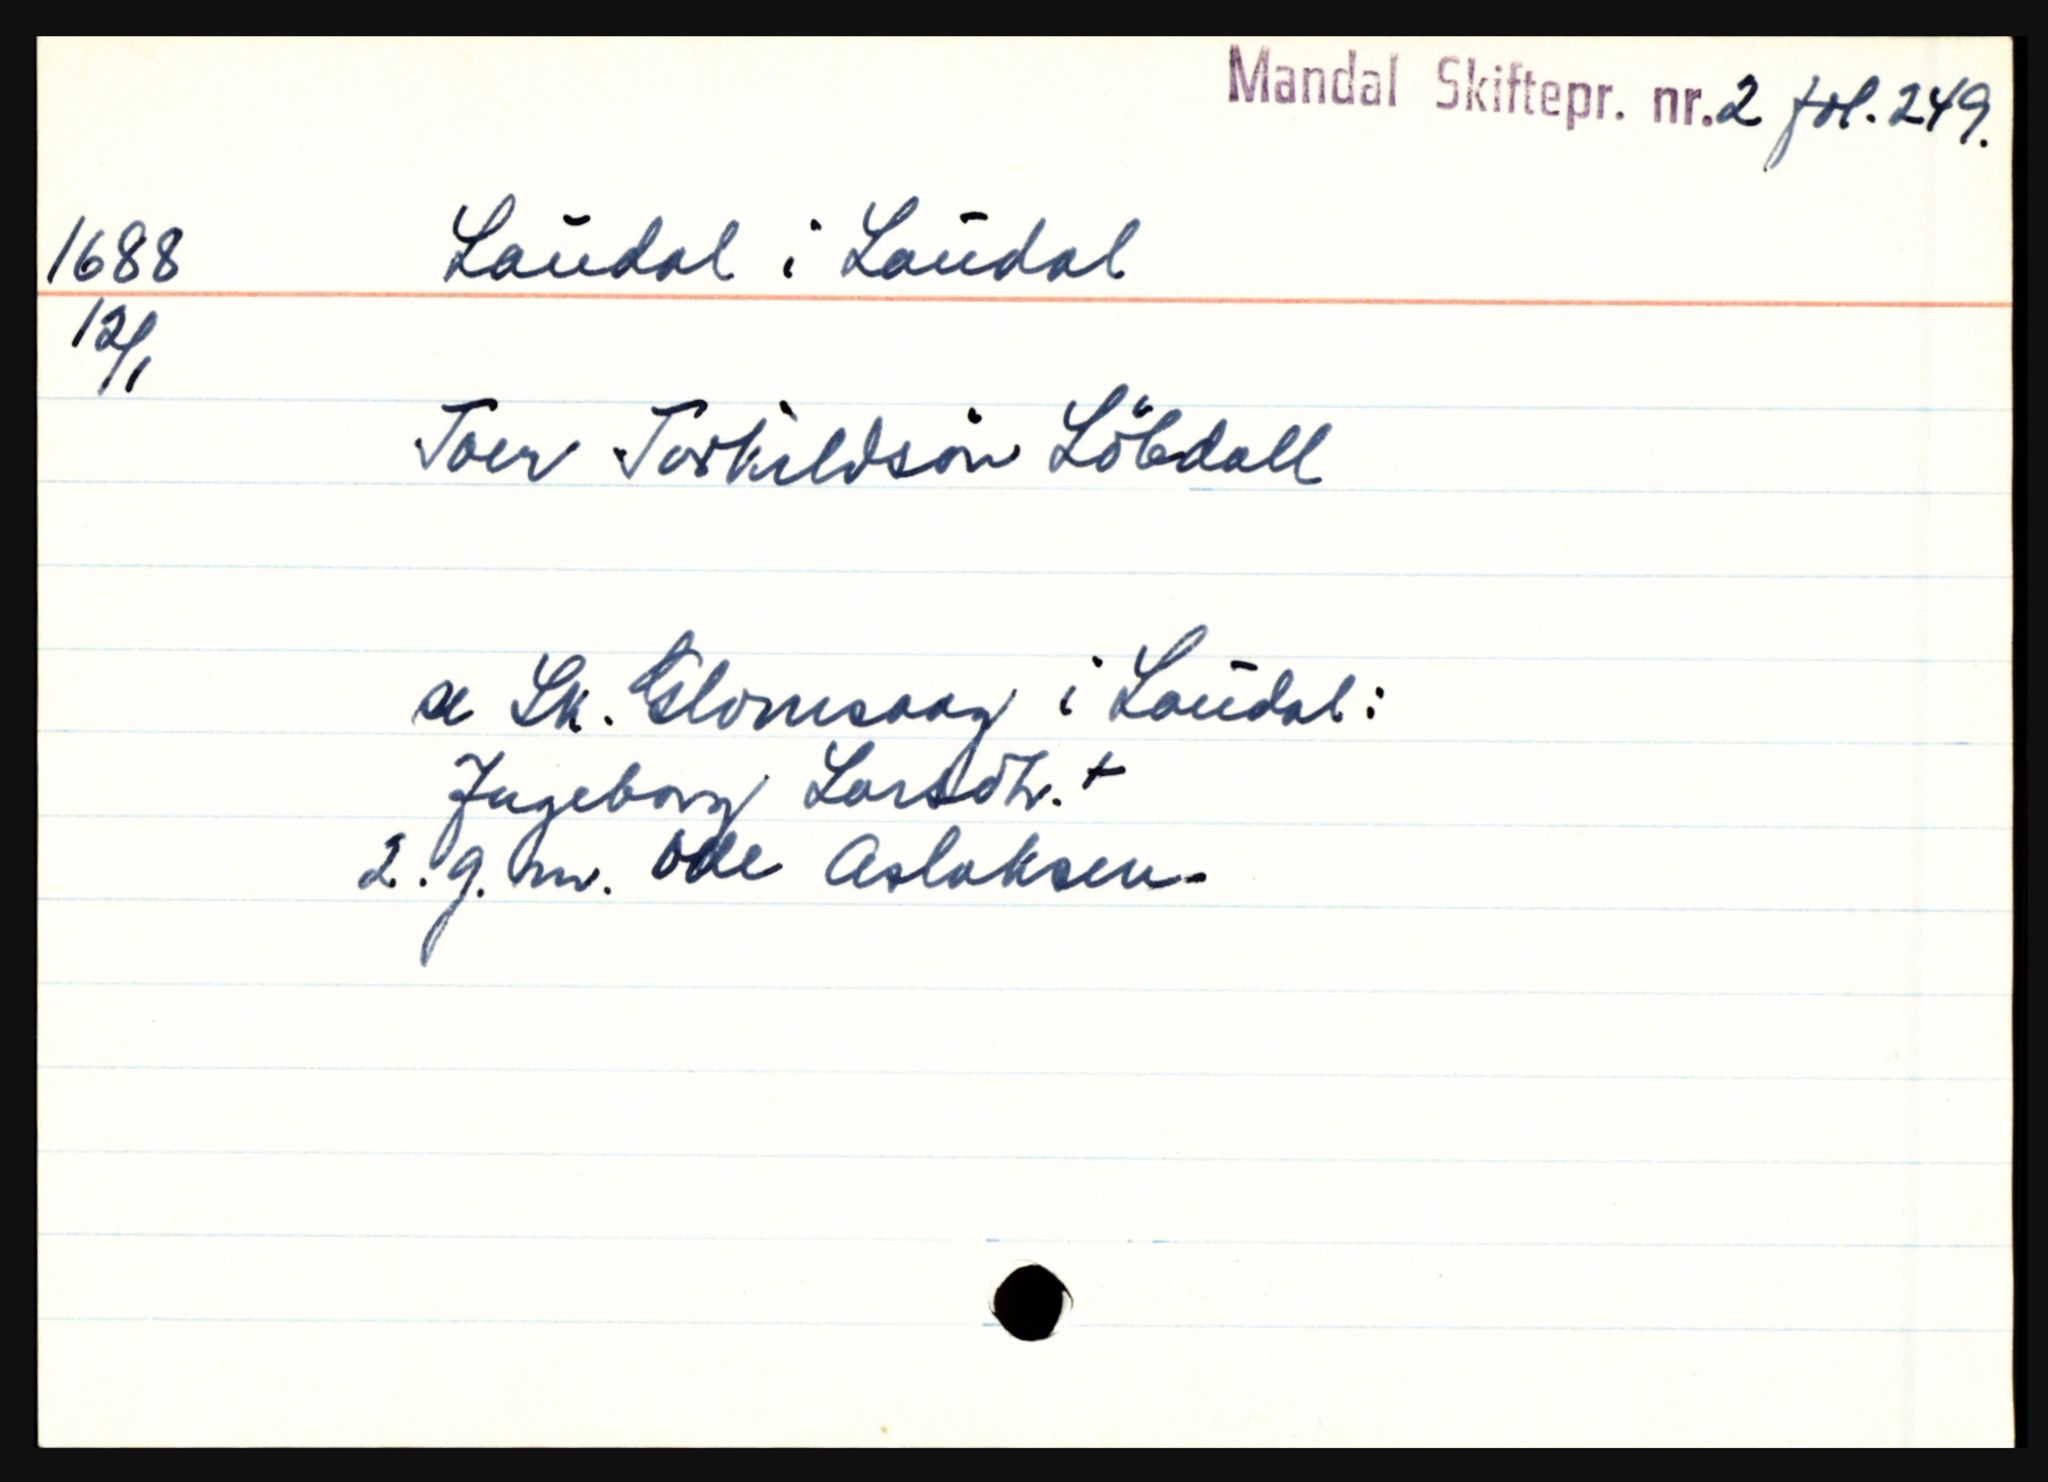 Mandal Skiftepr. nr. 2 fol. 249.
1688 Laudal i Laudal
12/1
Toer Torkildsön Löbdall
se Sk. Glomsaag i Laudal:
Ingeborg Larsdtr. +
2. g. m. Ode Aslaksen-